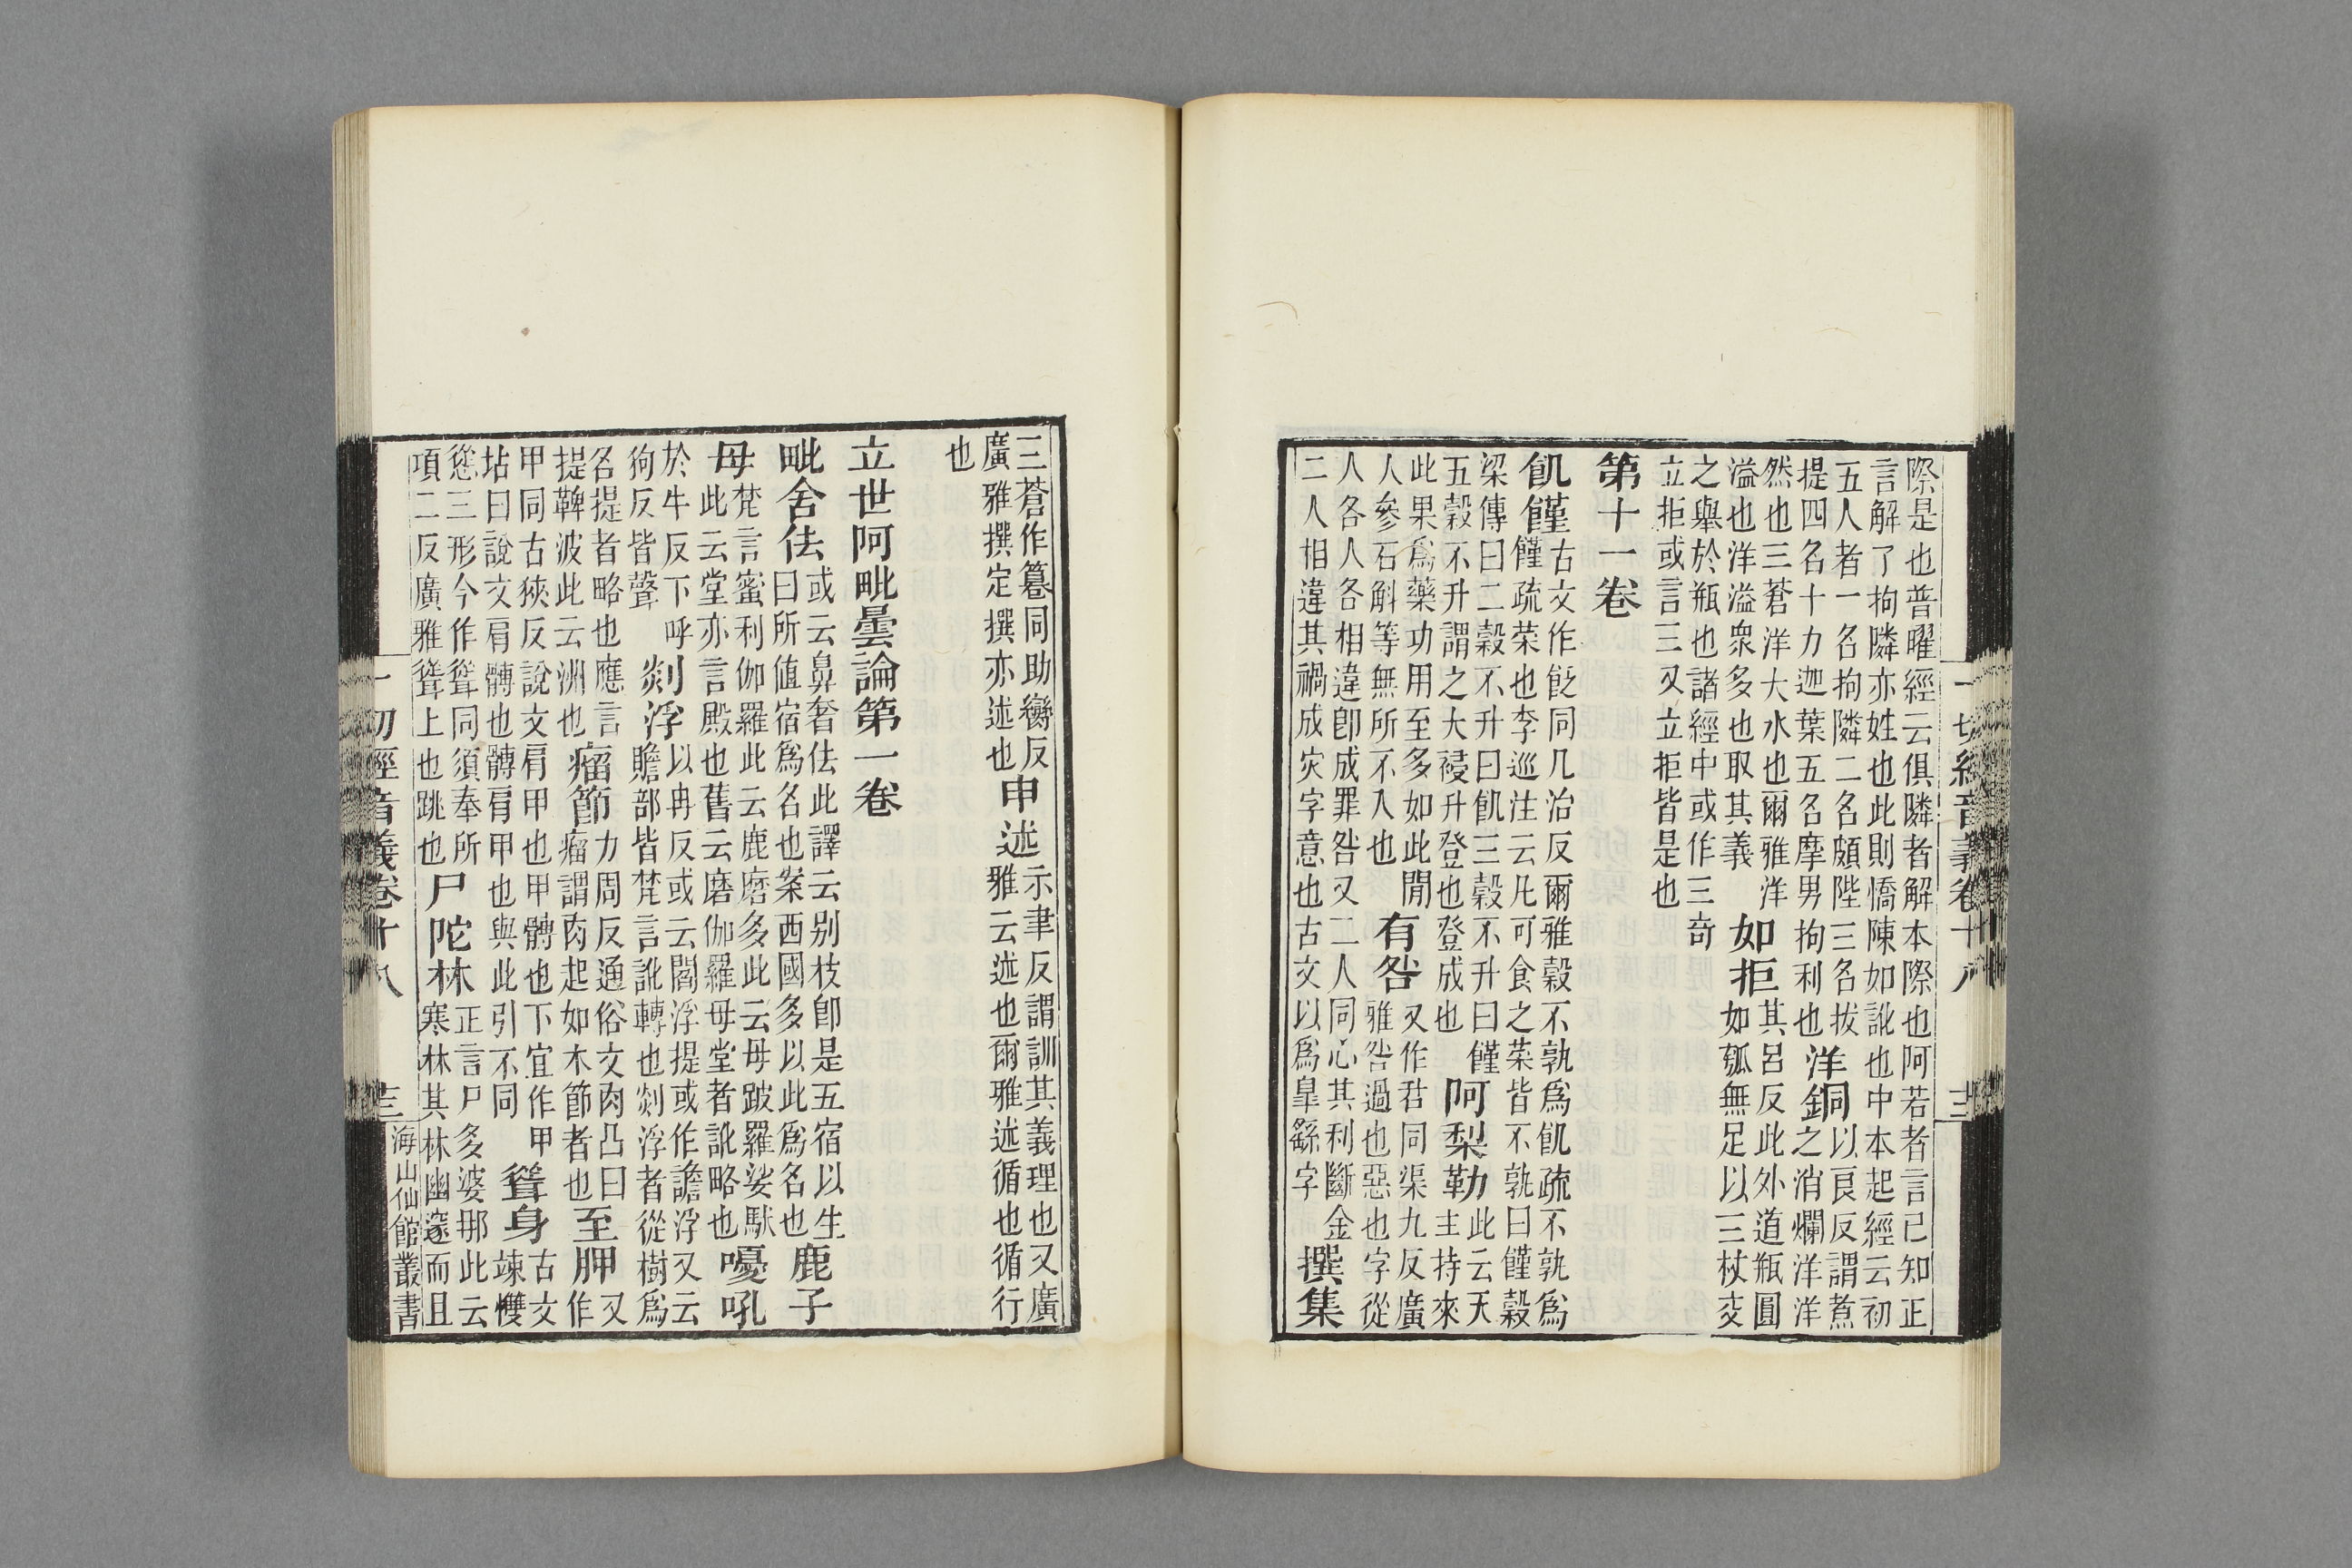 際是也普曜經云俱隣者解本際也阿若者言已知正
言解了拘隣亦姓也此則憍陳如訛也中本起經云初
五人者一名拘隣二名頗陛三名拔
提四名十力迦葉五名摩男拘利也
洋銅
以良反謂煮
之消爛洋洋
然也三蒼洋大水也爾雅洋
溢也洋溢衆多也取其義
如拒
其呂反此外道瓶圓
如瓠無足以三杖交
之舉於瓶也諸經中或作三奇
立拒或言三叉立拒皆是也
第十一卷
飢饉
古文作飤同几治反爾雅穀不孰爲飢疏不孰爲
饉疏菜也李巡注云凡可食之菜皆不孰曰饉穀
梁傳曰二穀不升曰飢三穀不升曰饉
五穀不升謂之大祲升登也登成也
阿梨勒
此云天
主持來
此果爲藥功用至多如此閒
人參石斛等無所不入也
有咎
又作同渠九反廣
雅咎過也惡也字從
人各人各相違卽成罪咎又二人同心其利斷金
二人相違其禍成灾字意也古文以爲皐繇字
撰集
三蒼作篹同助攣反
廣雅撰定撰亦述也
申述
示聿反謂訓其義理也又廣
雅云述也爾雅述循也循行
也
立世阿毗曇論第一卷
毗舍佉
或云鼻奢佉此譯云别枝卽是五宿以生
曰所値宿爲名也案西國多以此爲名也
鹿子
母
梵言蜜利伽羅此云鹿磨多此云毋跛羅娑馱
此云堂亦言殿也舊云磨伽羅毋堂者訛略也
嚘吼
於牛反下呼
狗反皆聲
剡浮
以冉反或云閻浮提或作譫浮又云
贍部皆梵言訛轉也剡浮者從樹爲
名提者略也應言
提鞞波此云洲也
瘤節
力周反通俗文肉凸曰
瘤謂肉起如木節者也
至胛
又
作
甲同古狹反說文肩甲也甲髆也下宜作甲
坫曰說文肩髆也髆肩甲也與此引不同
聳身
古文
竦㩳
慫三形今作聳同須奉所
項二反廣雅聳上也跳也
尸陀林
正言尸多婆那此云
寒林其林幽邃而且
一切經音義卷十八
三
海山仙館叢書